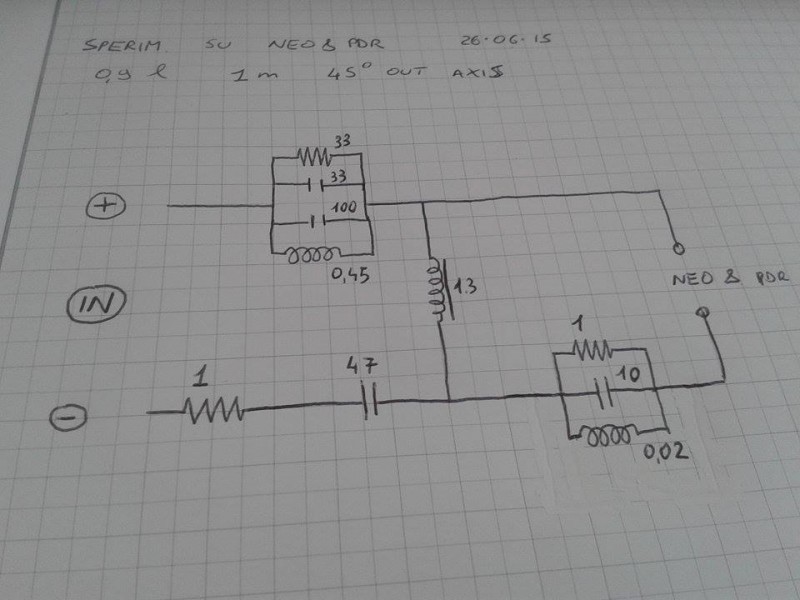 SPERIM. SU NEO & PDR 26.06.15
0,9 l 1m 45° OUT AXIS
33
33
100
+
0,45
1.3
NEO & PDR
IN
1
1
47
10
-
0,02